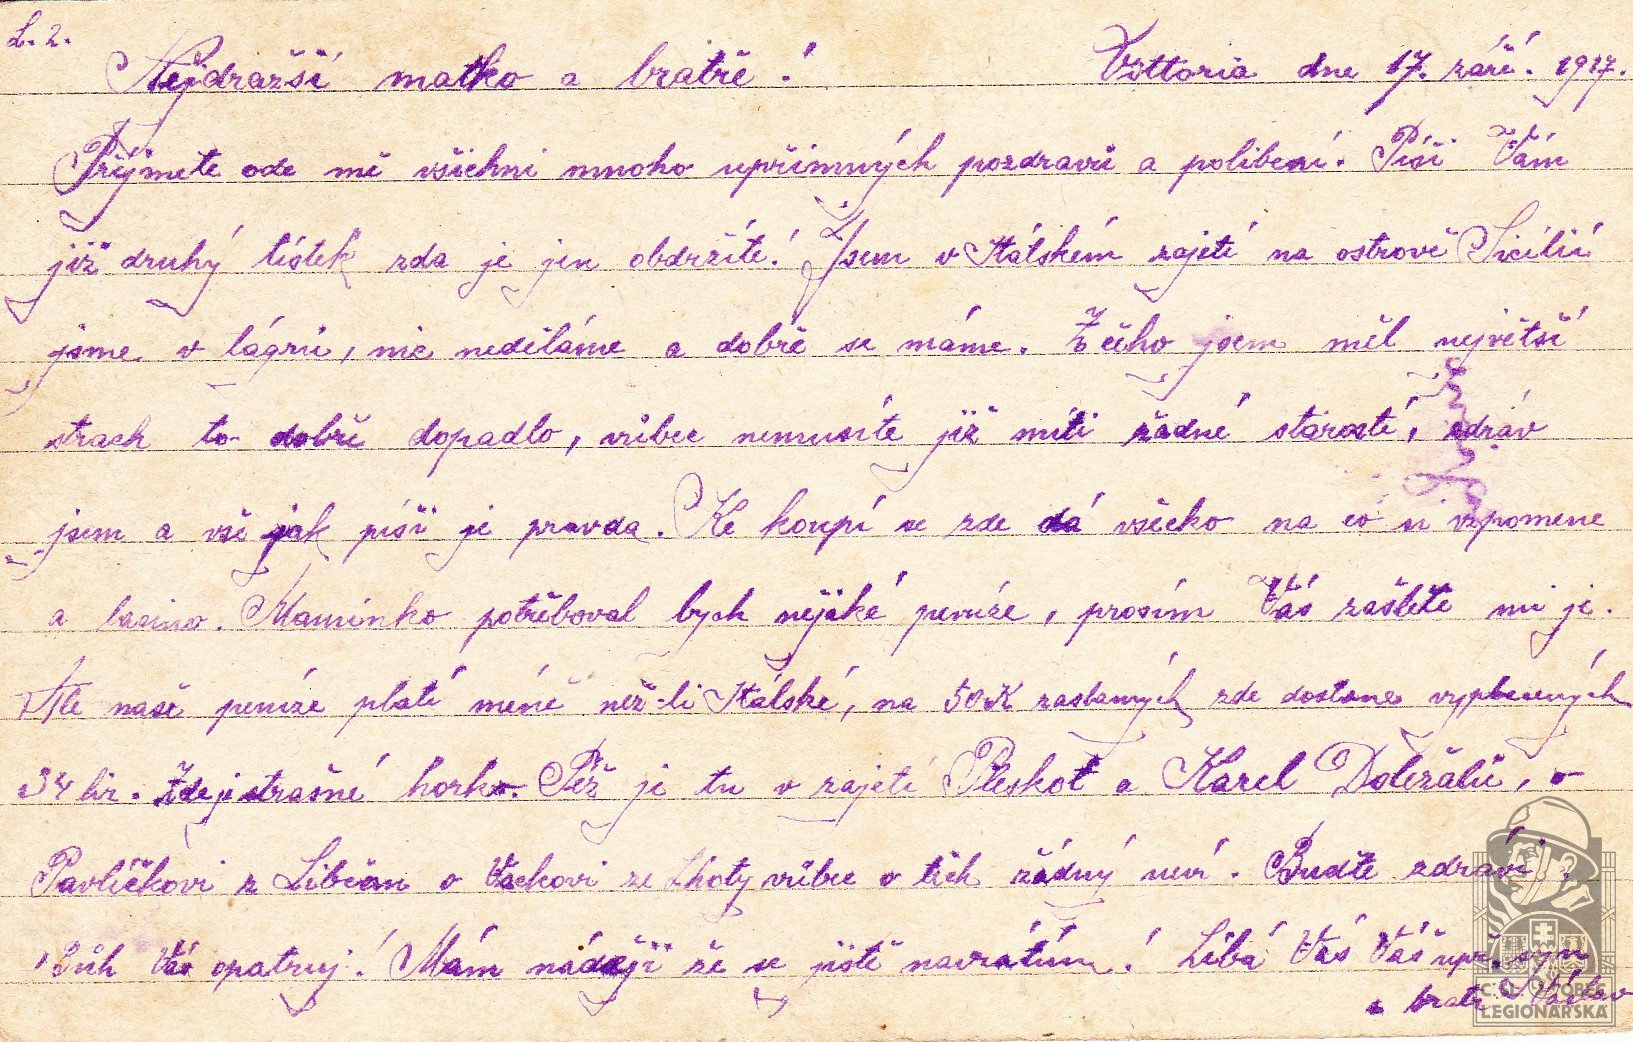 L. 2.
Nejdražší matko a bratře! Vittoria dne 17. září. 1917.
Přijmete ode mě všichni mnoho upřimných pozdravů a políbení. Píši Vám
již druhý lístek zda je jen obdržíte! Jsem v Itálském zajetí na ostrově Sicílií
jsme v lágru, nic neděláme a dobře se máme. Z čeho jsem měl největší
strach to dobře dopadlo, vůbec nemusíte již míti žádné starosti, zdráv
jsem a vše jak píši je pravda. Ke koupí se zde dá všecko na co si vzpomene
a lacino. Maminko potřeboval bych nějaké peníze, prosím Vás zašlete mi je.
Ale naše peníze platí méně než-li Itálské, na 50K zaslaných zde dostane vyplacených
34 lir. Zde je strašné horko. Též je tu v zajetí Pleskot a Karel Doležalů, o
Pavlíčkovi z Libčan o Vackovi ze Lhoty vůbec o těch žádný neví. Buďte zdrávi
Bůh Vás opatruj! Mám náději že se jistě navrátím! Líbá Vás Váš upř. syn
a bratr Václav
C.S. OBEC
LEGIONÁŘSKÁ